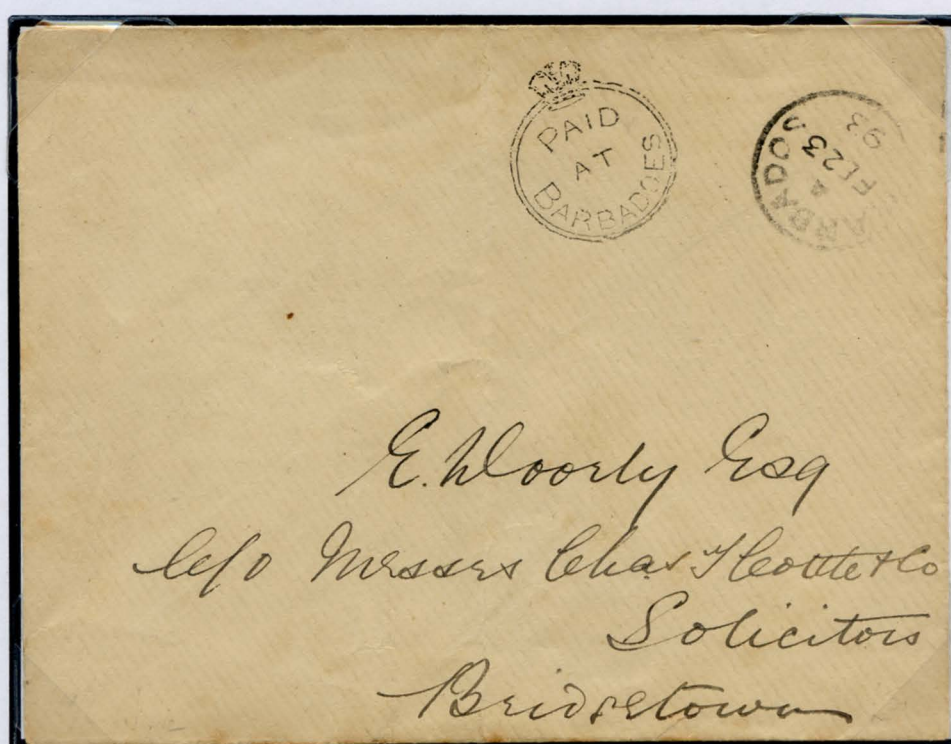 PAID
AT
BARBADOES
BARBADOS
4
FE 23
93
E. Doorly Esq
C/o Messrs Chas T Cottle & Co
Solicitors
Bridgetown